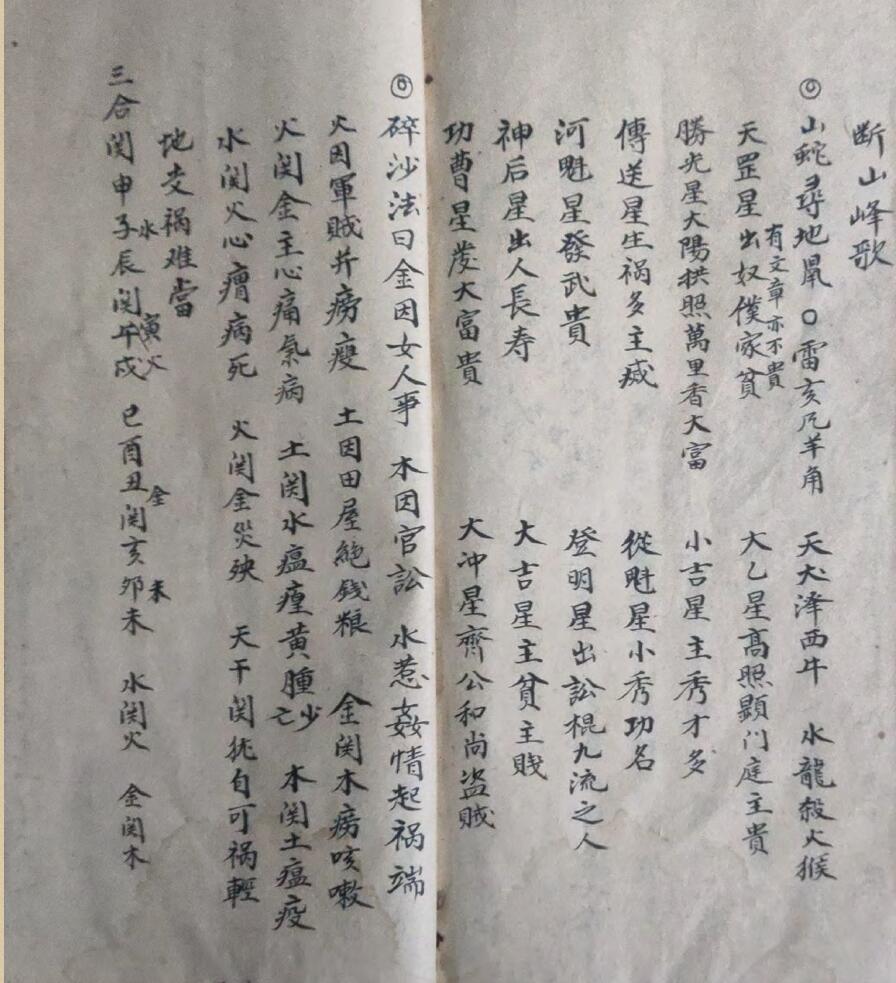 断山峰歌
山蛇尋地鼠 〇 雷亥凡羊角 天犬泽西牛 水龍殺火猴
天罡星出奴僕家貧 大乙星高照顯门庭主貴
有文章亦不貴
勝光星大陽拱照萬里香大富 小吉星主秀才多
傳送星生祸多主 從魁星小秀功名
河魁星發武貴 登明星出訟棍九流之人
神后星出人長寿 大吉星主貧主賎
功曹星发大富貴 大冲星齊公和尚盗贼
碎沙法曰金因女人事 木因官訟 水惹姦情起祸端
火因軍贼并痨瘦 土因田屋絶錢粮 金関木痨咳嗽
火関金主心痛氣病 土関水瘟瘴黄腫少亡 木関土瘟疫
水関火心病死 火関金災殃 天干関犹自可祸輕
地支祸难當
三合関申子辰関午戍 巳酉丑関亥夘未 水関火 金関木
水 寅火 金 木